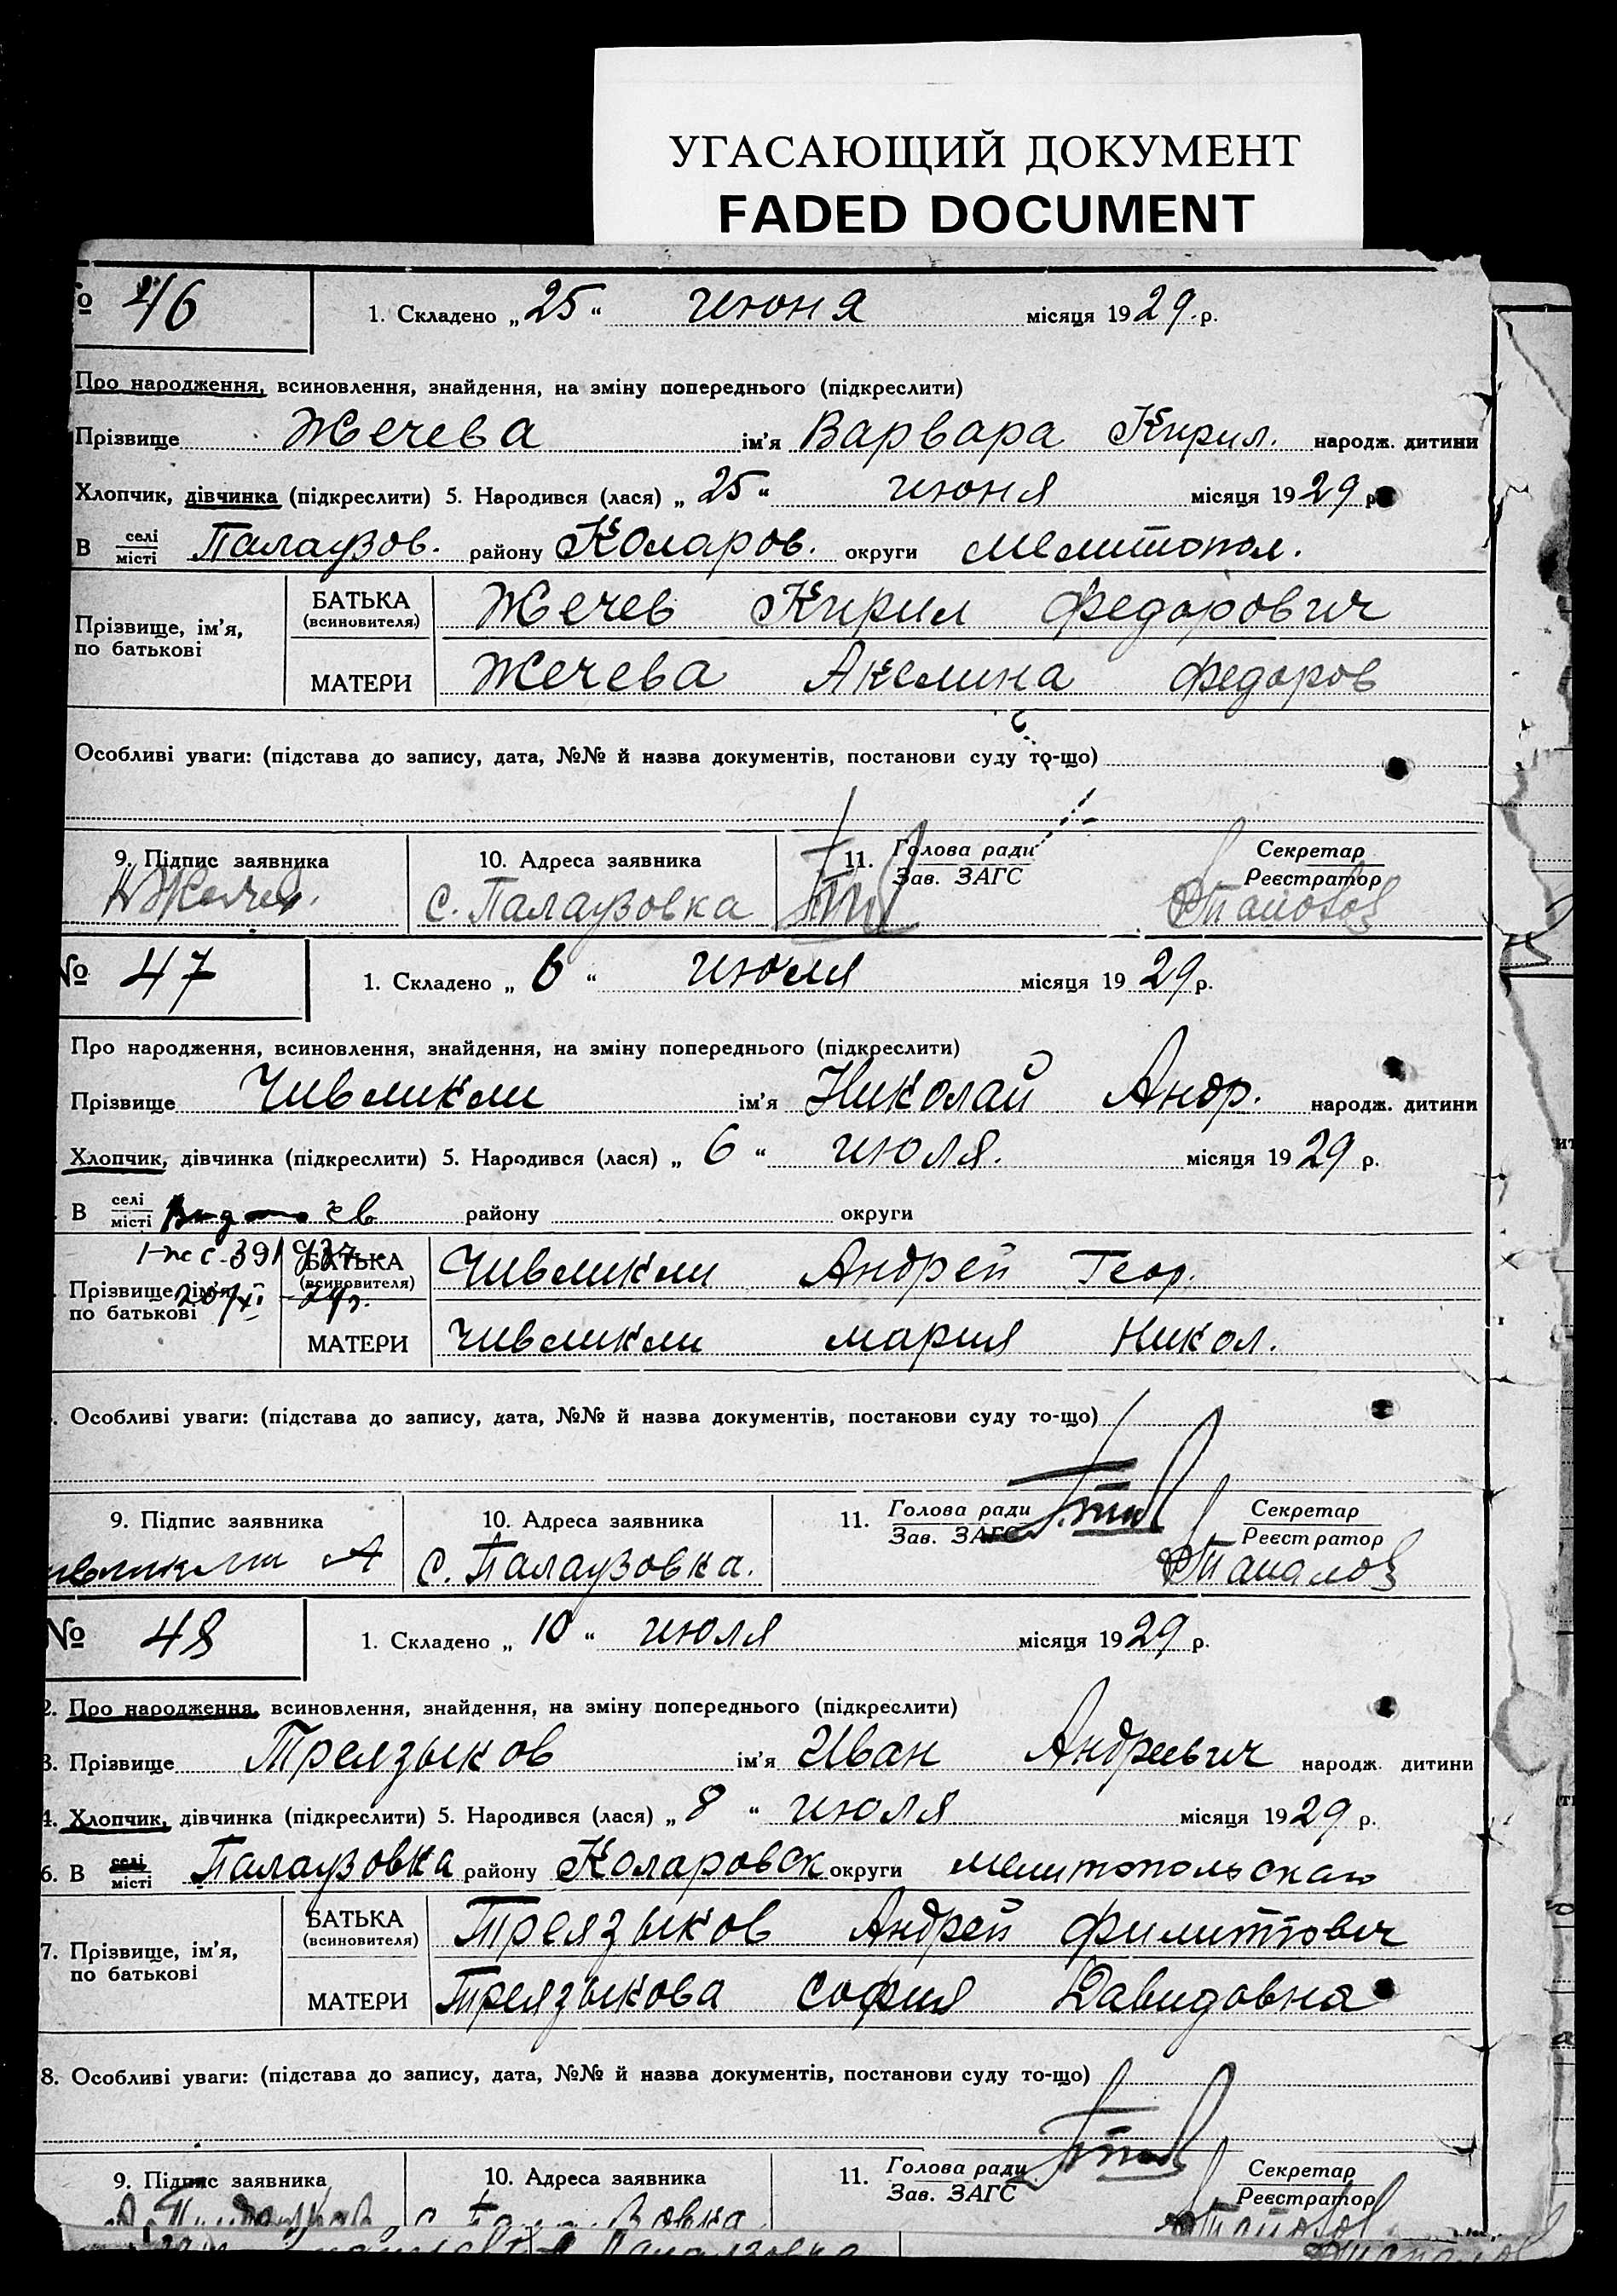 УГАСАЮЩИЙ ДОКУМЕНТ
FADED DOCUMENT
№ 46
1. Складено „ 25 “ июня місяця 1929. р.
Про народження, всиновлення, знайдення, на зміну попереднього (підкреслити)
Прізвище Жечева ім’я Варвара Кирил. народж. дитини
Хлопчик, дівчинка (підкреслити) 5. Народився (лася) „ 25 “ июня місяця 1929 р.
В селі місті Палаузов. району Коларов. округи Мелитопол.
Прізвище, ім’я, по батькові
БАТЬКА (всиновителя) Жечев Кирил Федорович
МАТЕРИ Жечева Акелина Федоров
Особливі уваги: (підстава до запису, дата, №№ й назва документів, постанови суду то-що)
9. Підпис заявника 10. Адреса заявника 11. Голова ради Секретар
Зав. ЗАГС Реєстратор
с. Палаузовка
№ 47
1. Складено „ 6 “ июля місяця 1929 р.
Про народження, всиновлення, знайдення, на зміну попереднього (підкреслити)
Прізвище Чивликли ім’я Николай Андр. народж. дитини
Хлопчик, дівчинка (підкреслити) 5. Народився (лася) „ 6 “ июля. місяця 1929 р.
В селі місті району округи
Прізвище, ім’я, по батькові
БАТЬКА (всиновителя) Чивликли Андрей Геор.
МАТЕРИ Чивликли Мария Никол.
Особливі уваги: (підстава до запису, дата, №№ й назва документів, постанови суду то-що)
9. Підпис заявника 10. Адреса заявника 11. Голова ради Секретар
Зав. ЗАГС Реєстратор
с. Палаузовка.
№ 48
1. Складено „ 10 “ июля місяця 1929 р.
2. Про народження, всиновлення, знайдення, на зміну попереднього (підкреслити)
3. Прізвище Трелзыков ім’я Иван Андреевич народж. дитини
4. Хлопчик, дівчинка (підкреслити) 5. Народився (лася) „ 8 “ июля місяця 1929 р.
6. В селі місті Палаузовка району Коларовск округи Мелитопольскаго
7. Прізвище, ім’я, по батькові
БАТЬКА (всиновителя) Трелзыков Андрей Филиппович
МАТЕРИ Трелзыкова София Давидовна
8. Особливі уваги: (підстава до запису, дата, №№ й назва документів, постанови суду то-що)
9. Підпис заявника 10. Адреса заявника 11. Голова ради Секретар
Зав. ЗАГС Реєстратор